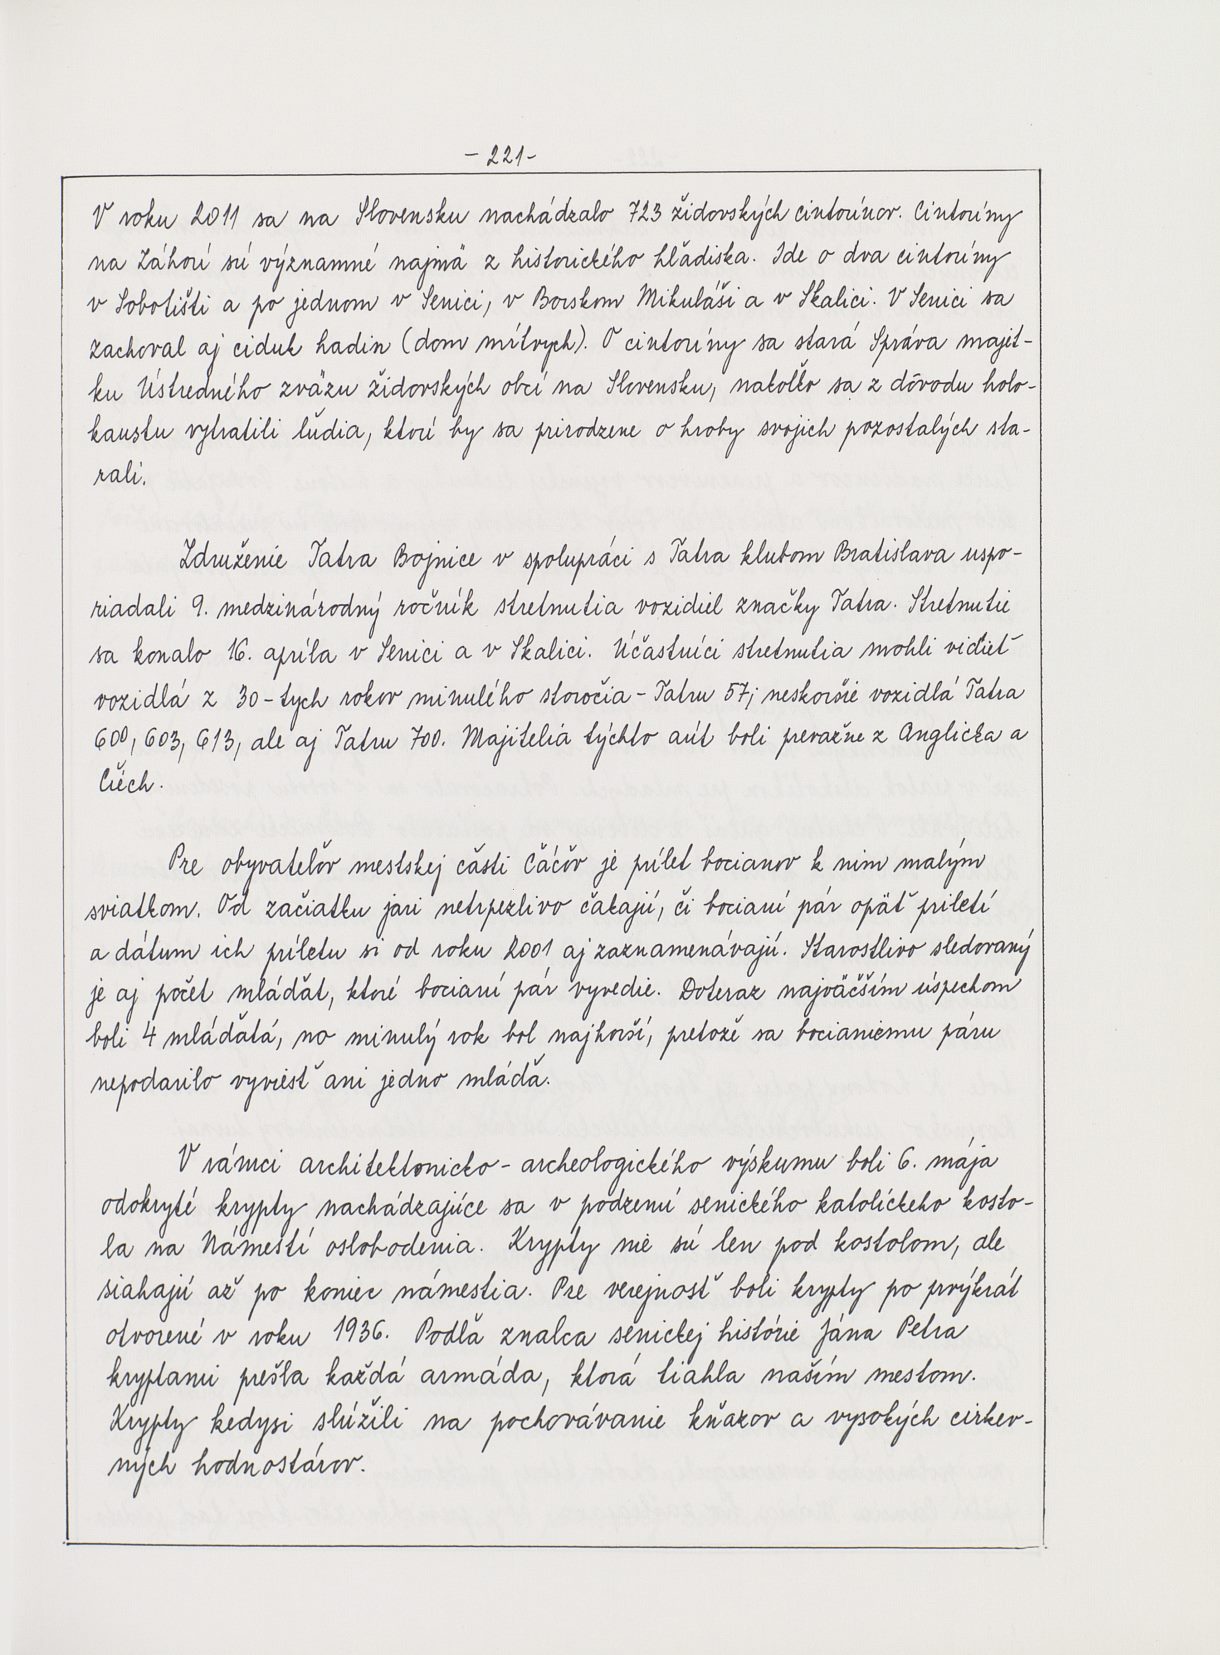 - 221 -
V roku 2011 sa na Slovensku nachádzalo 723 židovských cintorínov. Cintoríny
na Záhorí sú významné najmä z historického hľadiska. Ide o dva cintoríny
v Sobotišti a po jednom v Senici, v Borskom Mikuláši a v Skalici. V Senici sa
zachoval aj ciduk hadin (dom mŕtvych). O cintoríny sa stará Správa majet-
ku Ústredného zväzu židovských obcí na Slovensku, nakoľko sa z dôvodu holo-
kaustu vytratili ľudia, ktorí by sa prirodzene o hroby svojich pozostalých sta-
rali.
Združenie Tatra Bojnice v spolupráci s Tatra klubom Bratislava uspo-
riadali 9. medzinárodný ročník stretnutia vozidiel značky Tatra. Stretnutie
sa konalo 16. apríla v Senici a v Skalici. Účastníci stretnutia mohli vidieť
vozidlá z 30-tych rokov minulého storočia - Tatru 57; neskoršie vozidlá Tatra
600, 603, 613, ale aj Tatru 700. Majitelia týchto áut boli prevažne z Anglicka a
Čiech.
Pre obyvateľov mestskej časti Čáčov je prílet bocianov k nim malým
sviatkom. Od začiatku jari netrpezlivo čakajú, či bocianí pár opäť priletí
a dátum ich príletu si od roku 2001 aj zaznamenávajú. Starostlivo sledovaný
je aj počet mláďat, ktoré bocianí pár vyvedie. Doteraz najväčším úspechom
boli 4 mláďatá, no minulý rok bol najhorší, pretože sa bocianiemu páru
nepodarilo vyviesť ani jedno mláďa.
V rámci architektonicko - archeologického výskumu boli 6. mája
odokryté krypty nachádzajúce sa v podzemí senického katolíckeho kosto-
la na Námestí oslobodenia. Krypty nie sú len pod kostolom, ale
siahajú až po koniec námestia. Pre verejnosť boli krypty po prvýkrát
otvorené v roku 1936. Podľa znalca senickej histórie Jána Petra
kryptami prešla každá armáda, ktorá tiahla našim mestom.
Krypty kedysi slúžili na pochovávanie kňazov a vysokých cirkev-
ných hodnostárov.